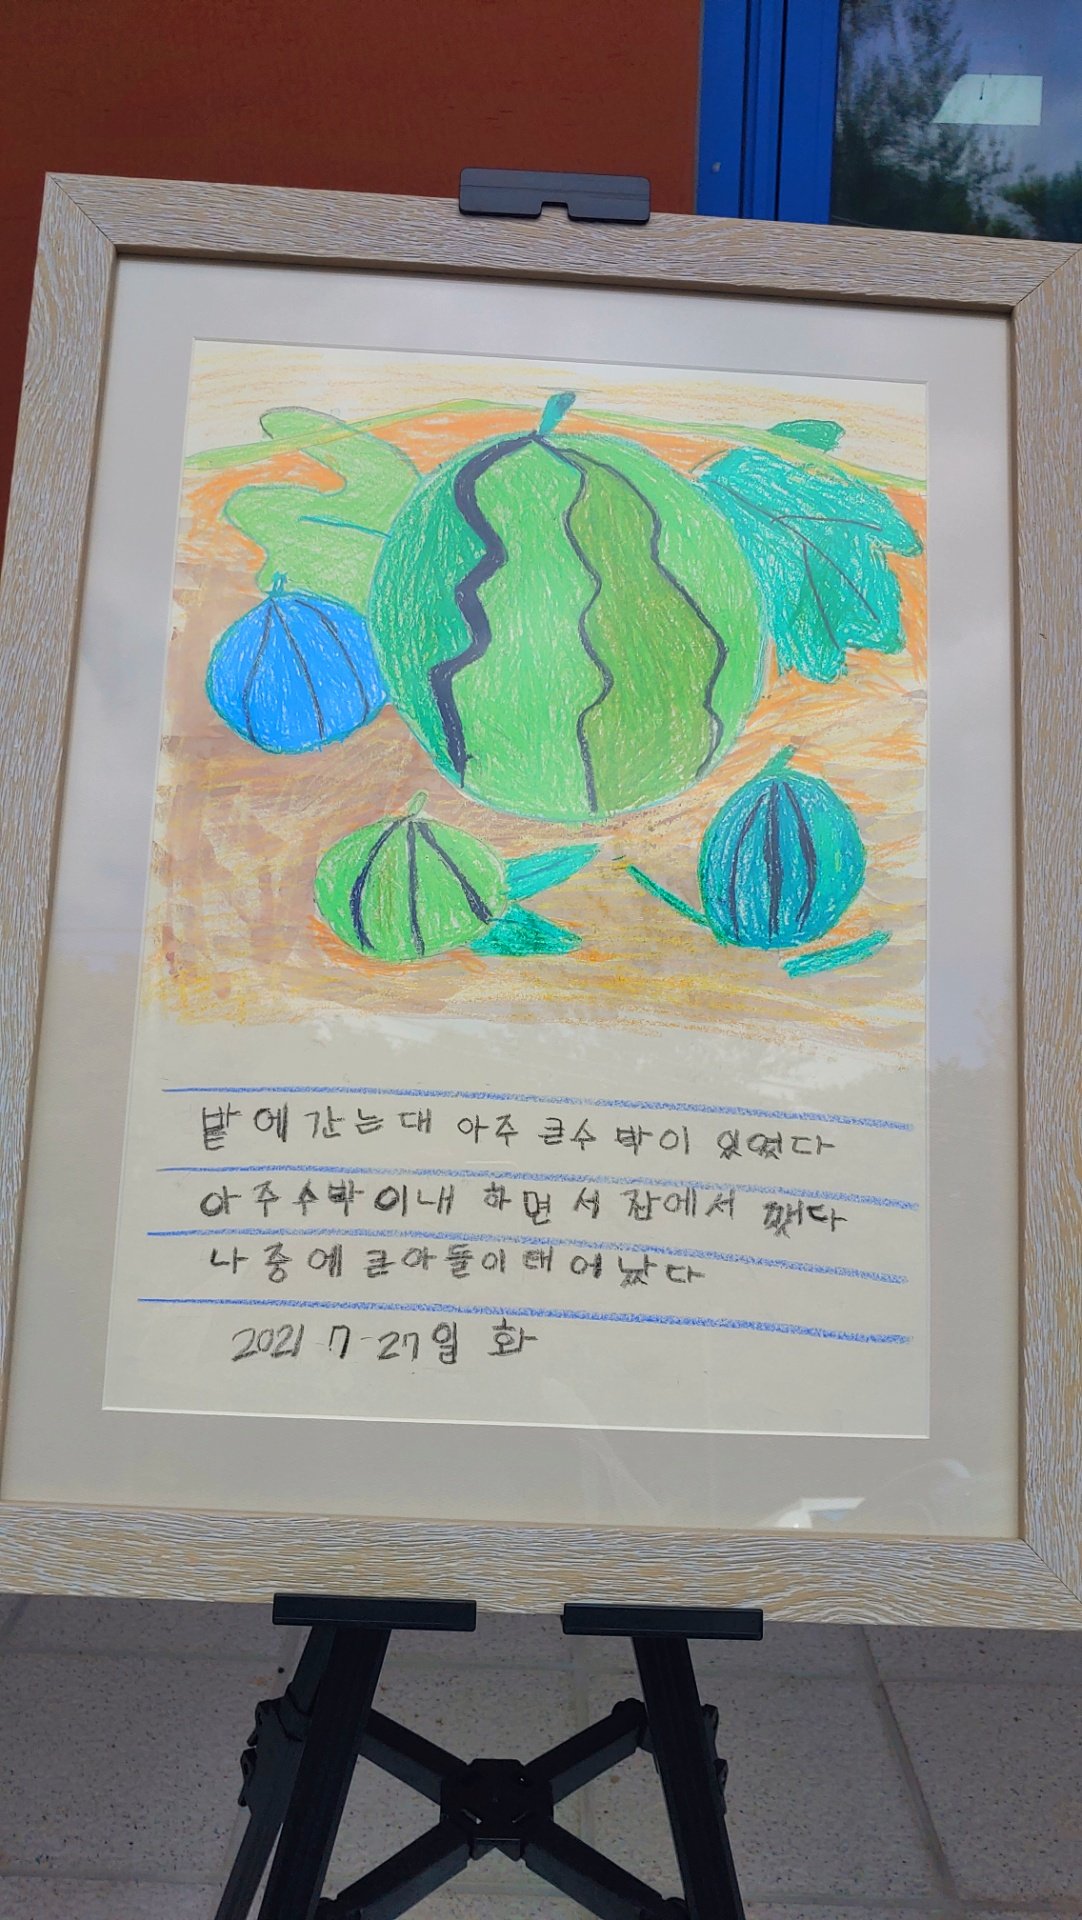 밭에 간는대 아주 큰수박이 있었다
아주 수박이내 하면서 잡에서 깼다
나중에 큰아들이 태어났다
2021 7-27일 화